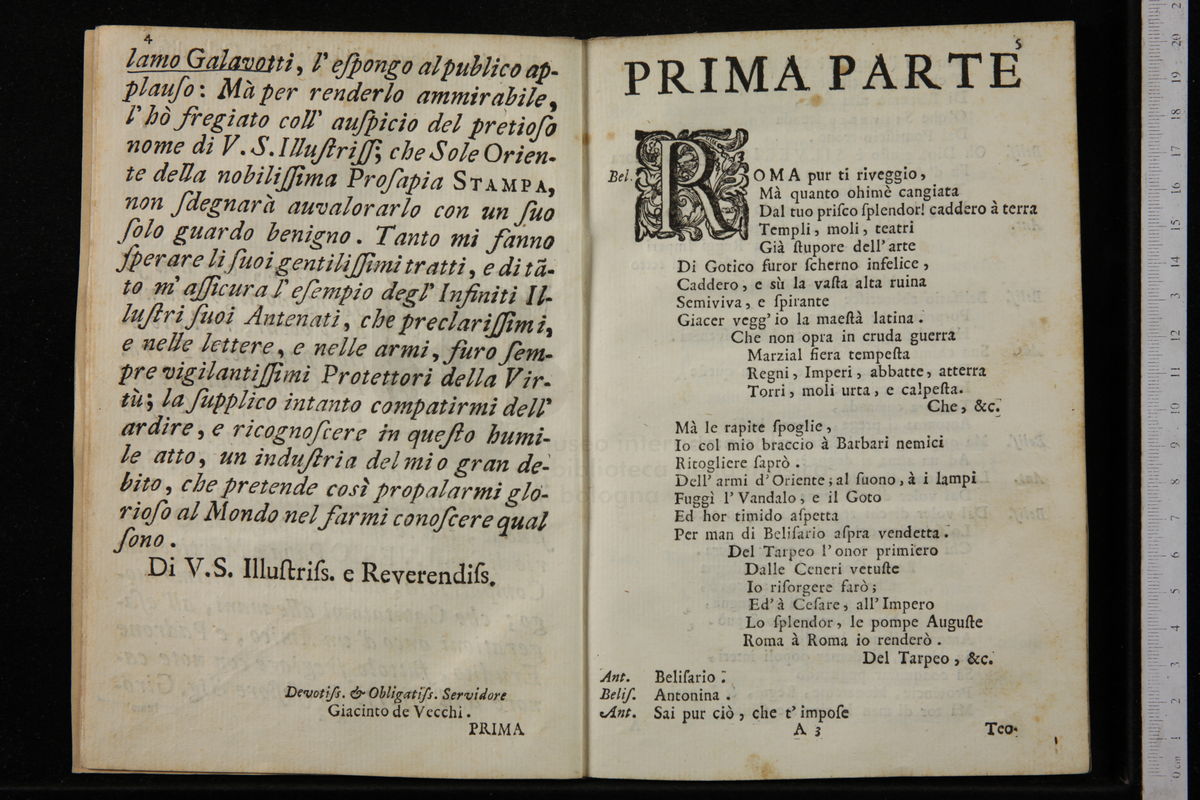 4
lamo Galavotti, l' eſpongo al publico ap-
plauſo: Mà per renderlo ammirabile,
l' hò fregiato coll' auſpicio del pretioſo
nome di V. S. Illuſtriſſ; che Sole Orien-
te della nobiliſſima Proſapia STAMPA,
non ſdegnarà auvalorarlo con un ſuo
ſolo guardo benigno. Tanto mi fanno
ſperare li ſuoi gentiliſſimi tratti, e di tã-
to m' aſſicura l' eſempio degl' Infiniti Il-
luſtri ſuoi Antenati, che preclariſſimi,
e nelle lettere, e nelle armi, furo ſem-
pre vigilantiſſimi Protettori della Vir-
tù; la ſupplico intanto compatirmi dell'
ardire, e ricognoſcere in queſto humi-
le atto, un induſtria del mio gran de-
bito, che pretende così propalarmi glo-
rioſo al Mondo nel farmi conoſcere qual
ſono.
Di V.S. Illuſtriſs. e Reverendiſs.
Devotiſs. & Obligatiſs. Servidore
Giacinto de Vecchi.
PRIMA
5
PRIMA PARTE
Bel. ROMA pur ti riveggio,
Mà quanto ohimè cangiata
Dal tuo priſco ſplendor! caddero à terra
Templi, moli, teatri
Già ſtupore dell' arte
Di Gotico furor ſcherno infelice,
Caddero, e sù la vaſta alta ruina
Semiviva, e ſpirante
Giacer vegg' io la maeſtà latina.
Che non opra in cruda guerra
Marzial fiera tempeſta
Regni, Imperi, abbatte, atterra
Torri, moli urta, e calpeſta.
Che, &c.
Mà le rapite ſpoglie,
Io col mio braccio à Barbari nemici
Ritogliere ſaprò.
Dell' armi d' Oriente; al ſuono, à i lampi
Fuggì l' Vandalo, e il Goto
Ed hor timido aſpetta
Per man di Beliſario aſpra vendetta.
Del Tarpeo l' onor primiero
Dalle Ceneri vetuſte
Io riſorgere farò;
Ed' à Ceſare, all' Impero
Lo ſplendor, le pompe Auguſte
Roma à Roma io renderò.
Del Tarpeo, &c.
Ant. Beliſario.
Beliſ. Antonina.
Ant. Sai pur ciò, che t' impoſe
A 3 Teo-